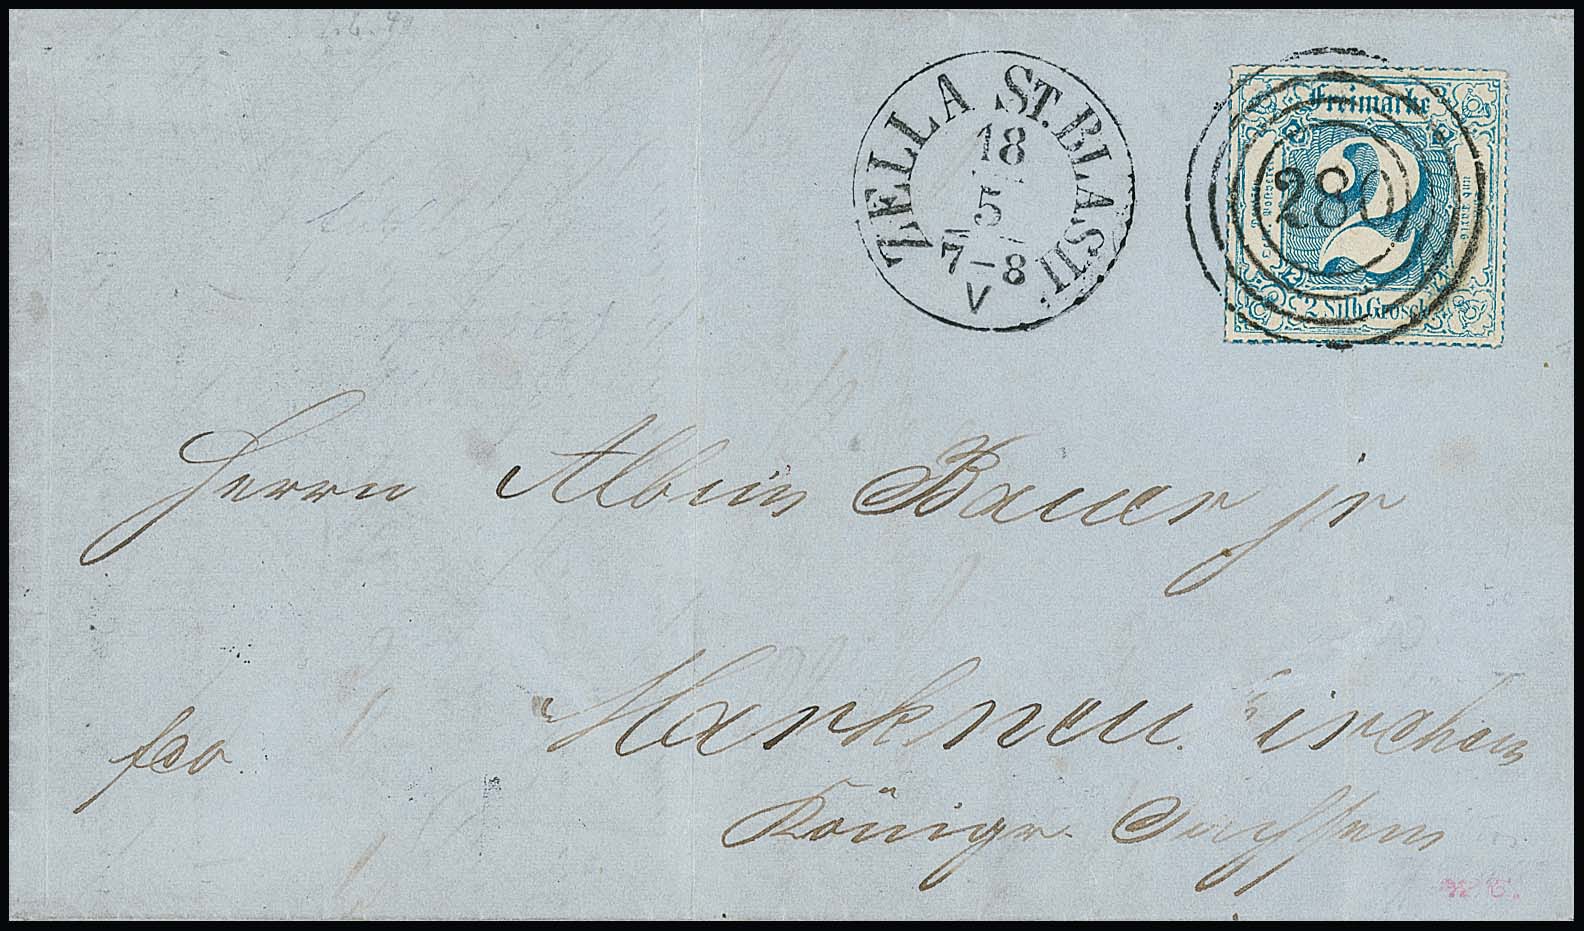 ZELLA ST. BLASII
18
5
7-8
V
Freimarke
2
280
2 Silb. Grosch.
Herrn Albin Bauer jr
Markneukirchen
fco.
Königr. Sachsen